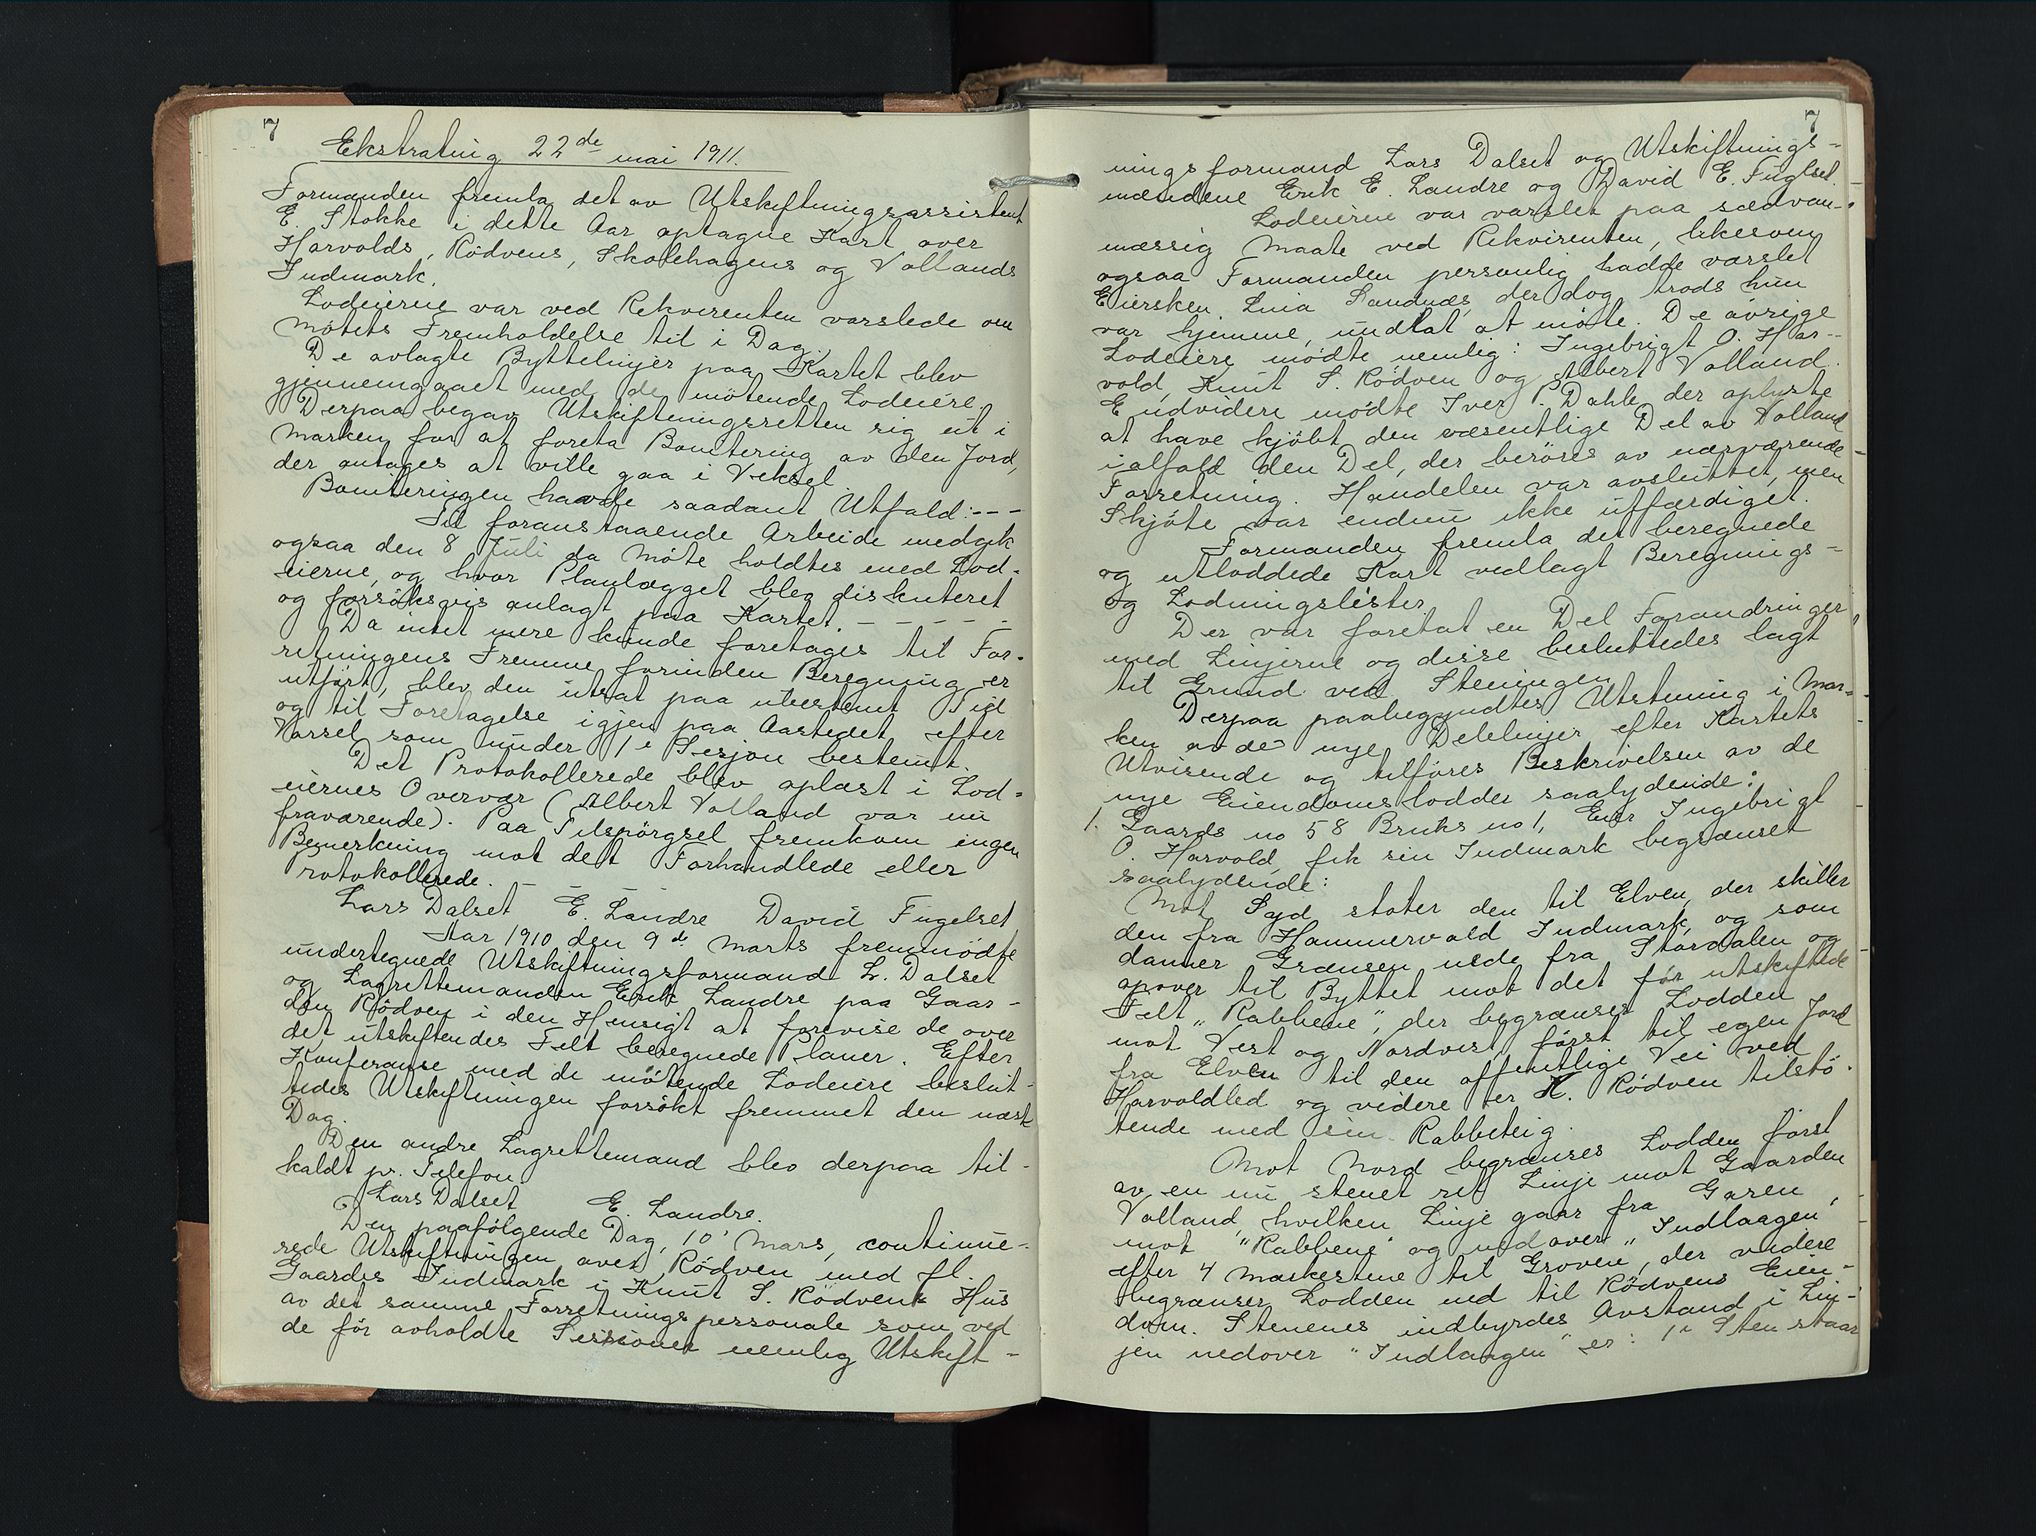 7
Ekstrating 22de mai 1911.
Formanden fremla det av Utskiftningsassistent
E. Stokke i dette Aar optagne Kart over
Harvolds, Rödvens, Skolehagens og Vollands
Indmark.
Lodeierne var ved Rekvirenten varslede om
Mötets Fremholdelse til i Dag.
De avlagte Byttelinjer paa Kartet blev
gjennemgaaet med de mötende Lodeiere.
Derpaa begav Utskiftningsretten sig ut i
Marken for at foreta Bonitering av den Jord,
der antages at ville gaa i Veksel.
Boniteringen havde saadant Utfald:---
Til foranstaaende Arbeide medgik
ogsaa den 8 Juli da Möte holdtes med Lod-
eierne, og hvor Planlægget blev diskuteret
og forsöksvis anlagt paa Kartet. - - - - -
Da intet mere kunde foretages til For-
retningens Fremme forinden Beregning er
utfört, blev den utsat paa ubestemt Tid
og til Foretagelse igjen paa Aastedet efter
Varsel som under 1e Sesjon bestemt.
Det Protokollerede blev oplæst i Lod-
eiernes Overvær (Albert Volland var nu
fraværende). Paa Tilspörgsel fremkom ingen
Bemerkning mot det Forhandlede eller
Protokollerede. - - -
Lars Dalset E. Landre David Fugelset
Aar 1910 den 9de Marts fremmödte
undertegnede Utskiftningsformand L. Dalset
og Lagrettemanden Erik Landre paa Gaar-
den Rödven i den Hensigt at forevise de over
det utskiftendes Felt beregnede Planer. Efter
Konferanse med de mötende Lodeiere beslut-
tedes Utskiftningen forsökt fremmet den næste
Dag.
Den andre Lagrettemand blev derpaa til-
kaldt pr. Telefon.
Lars Dalset E. Landre.
Den paafölgende Dag, 10' Mars, continue-
rede Utskiftningen over Rödven med fl.
Gaardes Indmark i Knut S. Rödvens Hus
av det samme Forretningspersonale som ved
de för avholdte Sessioner nemlig Utskift-
7
ningsformand Lars Dalset og Utskiftnings-
mændene Erik E. Landre og David E. Fuglset.
Lodeierne var varslet paa sædvan-
mæssig Maate ved Rekvirenten, likesom
ogsaa Formanden personlig hadde varslet
Eiersken Lina Sandnæs, der dog trods hun
var hjemme, undlat at möte. De övrige
Lodeiere mödte nemlig: Ingebrigt O. Har-
vold, Knut S. Rödven og Albert Volland.
Endvidere mödte Iver P. Dahle, der oplyste
at have kjöbt den væsentlige Del av Volland
ialfald den Del, der beröres av nærværende
Forretning. Handelen var avsluttet, men
Skjöte var endnu ikke utfærdiget.
Formanden fremla det beregnede
og utloddede Kart vedlagt Beregnings-
og Lodningslister.
Der var foretat en Del Forandringer
med Linjerne og disse besluttedes lagt
til Grund ved Steningen.
Derpaa paabegyndtes Utstening i Mar-
ken av de nye Delelinjer efter Kartets
Utvisende og tilföres Beskrivelsen av de
nye Eiendomslodder saalydende:
1. Gaards no 58 Bruks no 1, Eier Ingebrigt
O. Harvold, fik sin Indmark begrænset
saalydende:
Mot Syd stöter den til Elven, der skiller
den fra Hammervold Indmark, og som
danner Grænsen nede fra Stördalen og
opover til Byttet mot det för utskiftede
Felt „Rabbene“, der begrænser Lodden
mot Vest og Nordvest först til egen Jord
fra Elven til den offentlige Vei ved
Harvoldled og videre ter K. Rödven tilstö-
tende med sin Rabbeteig.
Mot Nord begrænses Lodden först
av en nu stenet ret Linje mot Gaarden
Volland, hvilken Linje gaar fra Garen
mot "Rabbene" og nedover „Indlaagen“
efter 4 Markestene til Groven, der videre
begrænser Lodden ned til Rödvens Eien-
dom. Stenenes indbyrdes Avstand i Lin-
jen nedover "Indlaagen" er: 1e Sten staar